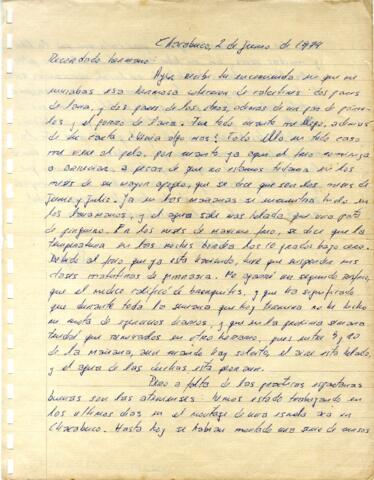 Chacabuco, 2 de Junio de 1974
Recordado hermano:
Ayer recibí tu encomienda en que me
enviabas esa hermosa colección de calcetines: dos pares
de lana, y dos pares de los otros, además de un par de pañue-
los y el gorro de lana. Fue todo cuanto me llegó, además
de tu carta ¿Venía algo más? Todo ello en todo caso
me viene al pelo, por cuanto ya aquí el frío comienza
a arreciar, a pesar de que no estamos todavía en los
meses de su mayor apogeo, que se dice que son los meses de
Junio y Julio. Ya en las mañanas se encuentra todo en
los lavamanos, y el agua sale más helada que una pata
de pingüino. En los meses de máximo frío, se dice que la
temperatura en las noches bordea los 10 grados bajo cero.
Debido al frío que ya está haciendo, tuve que suspender mis
clases matutinas de gimnasia. Me agarré un segundo resfrío,
que el médico calificó de bronquitis, y que ha significado
que durante toda la semana que hoy termina no he hecho
mi cuota de ejercicios diarios, y que en la próxima semana
tendré que renovarlos en otro horario, pues entre 9 y 10
de la mañana, aun cuando hay solcito, el aire está helado,
y el agua de las duchas está peor aun.
Pero a falta de las prácticas espartanas
buenas son las atenienses: hemos estado trabajando en
los últimos días en el montaje de una escuela acá en
Chacabuco. Hasta hoy se habían montado una serie de cursos